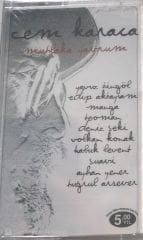 cem karaca
mutlaka yavrum
yavuz bingöl
edip akbayram
manga
teoman
deniz seki
volkan konak
haluk levent
suavi
ayhan yener
tuğrul arsever
5.00